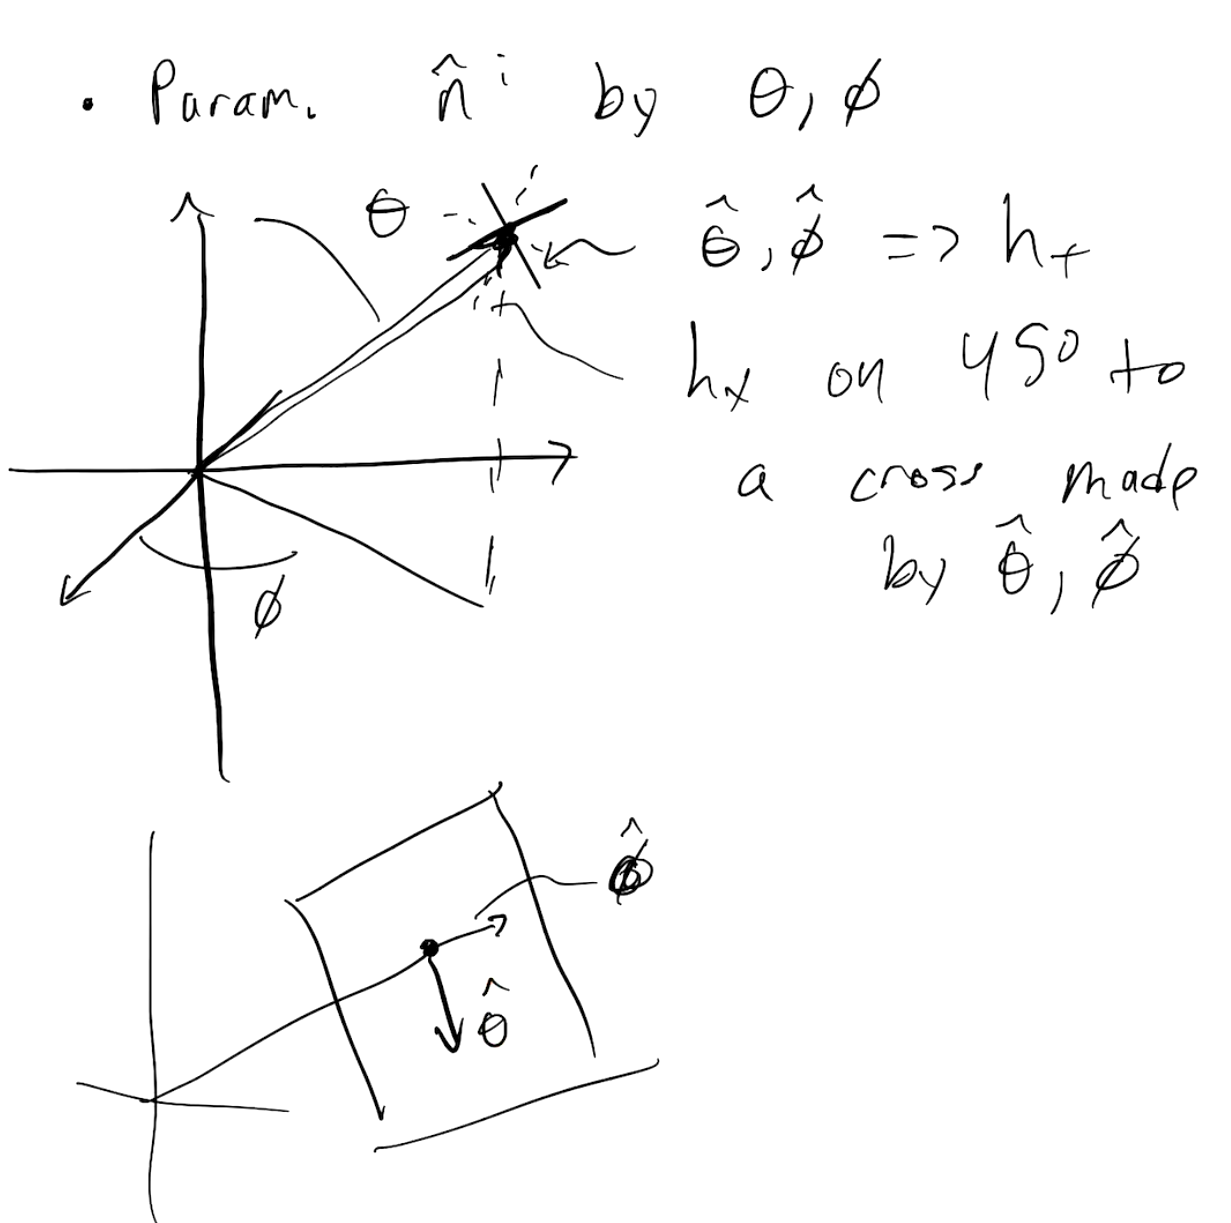 • Param. n̂ⁱ by θ, ϕ
θ
θ̂, ϕ̂ => h₊
hₓ on 45° to
a cross made
by θ̂, ϕ̂
ϕ
ϕ̂
θ̂